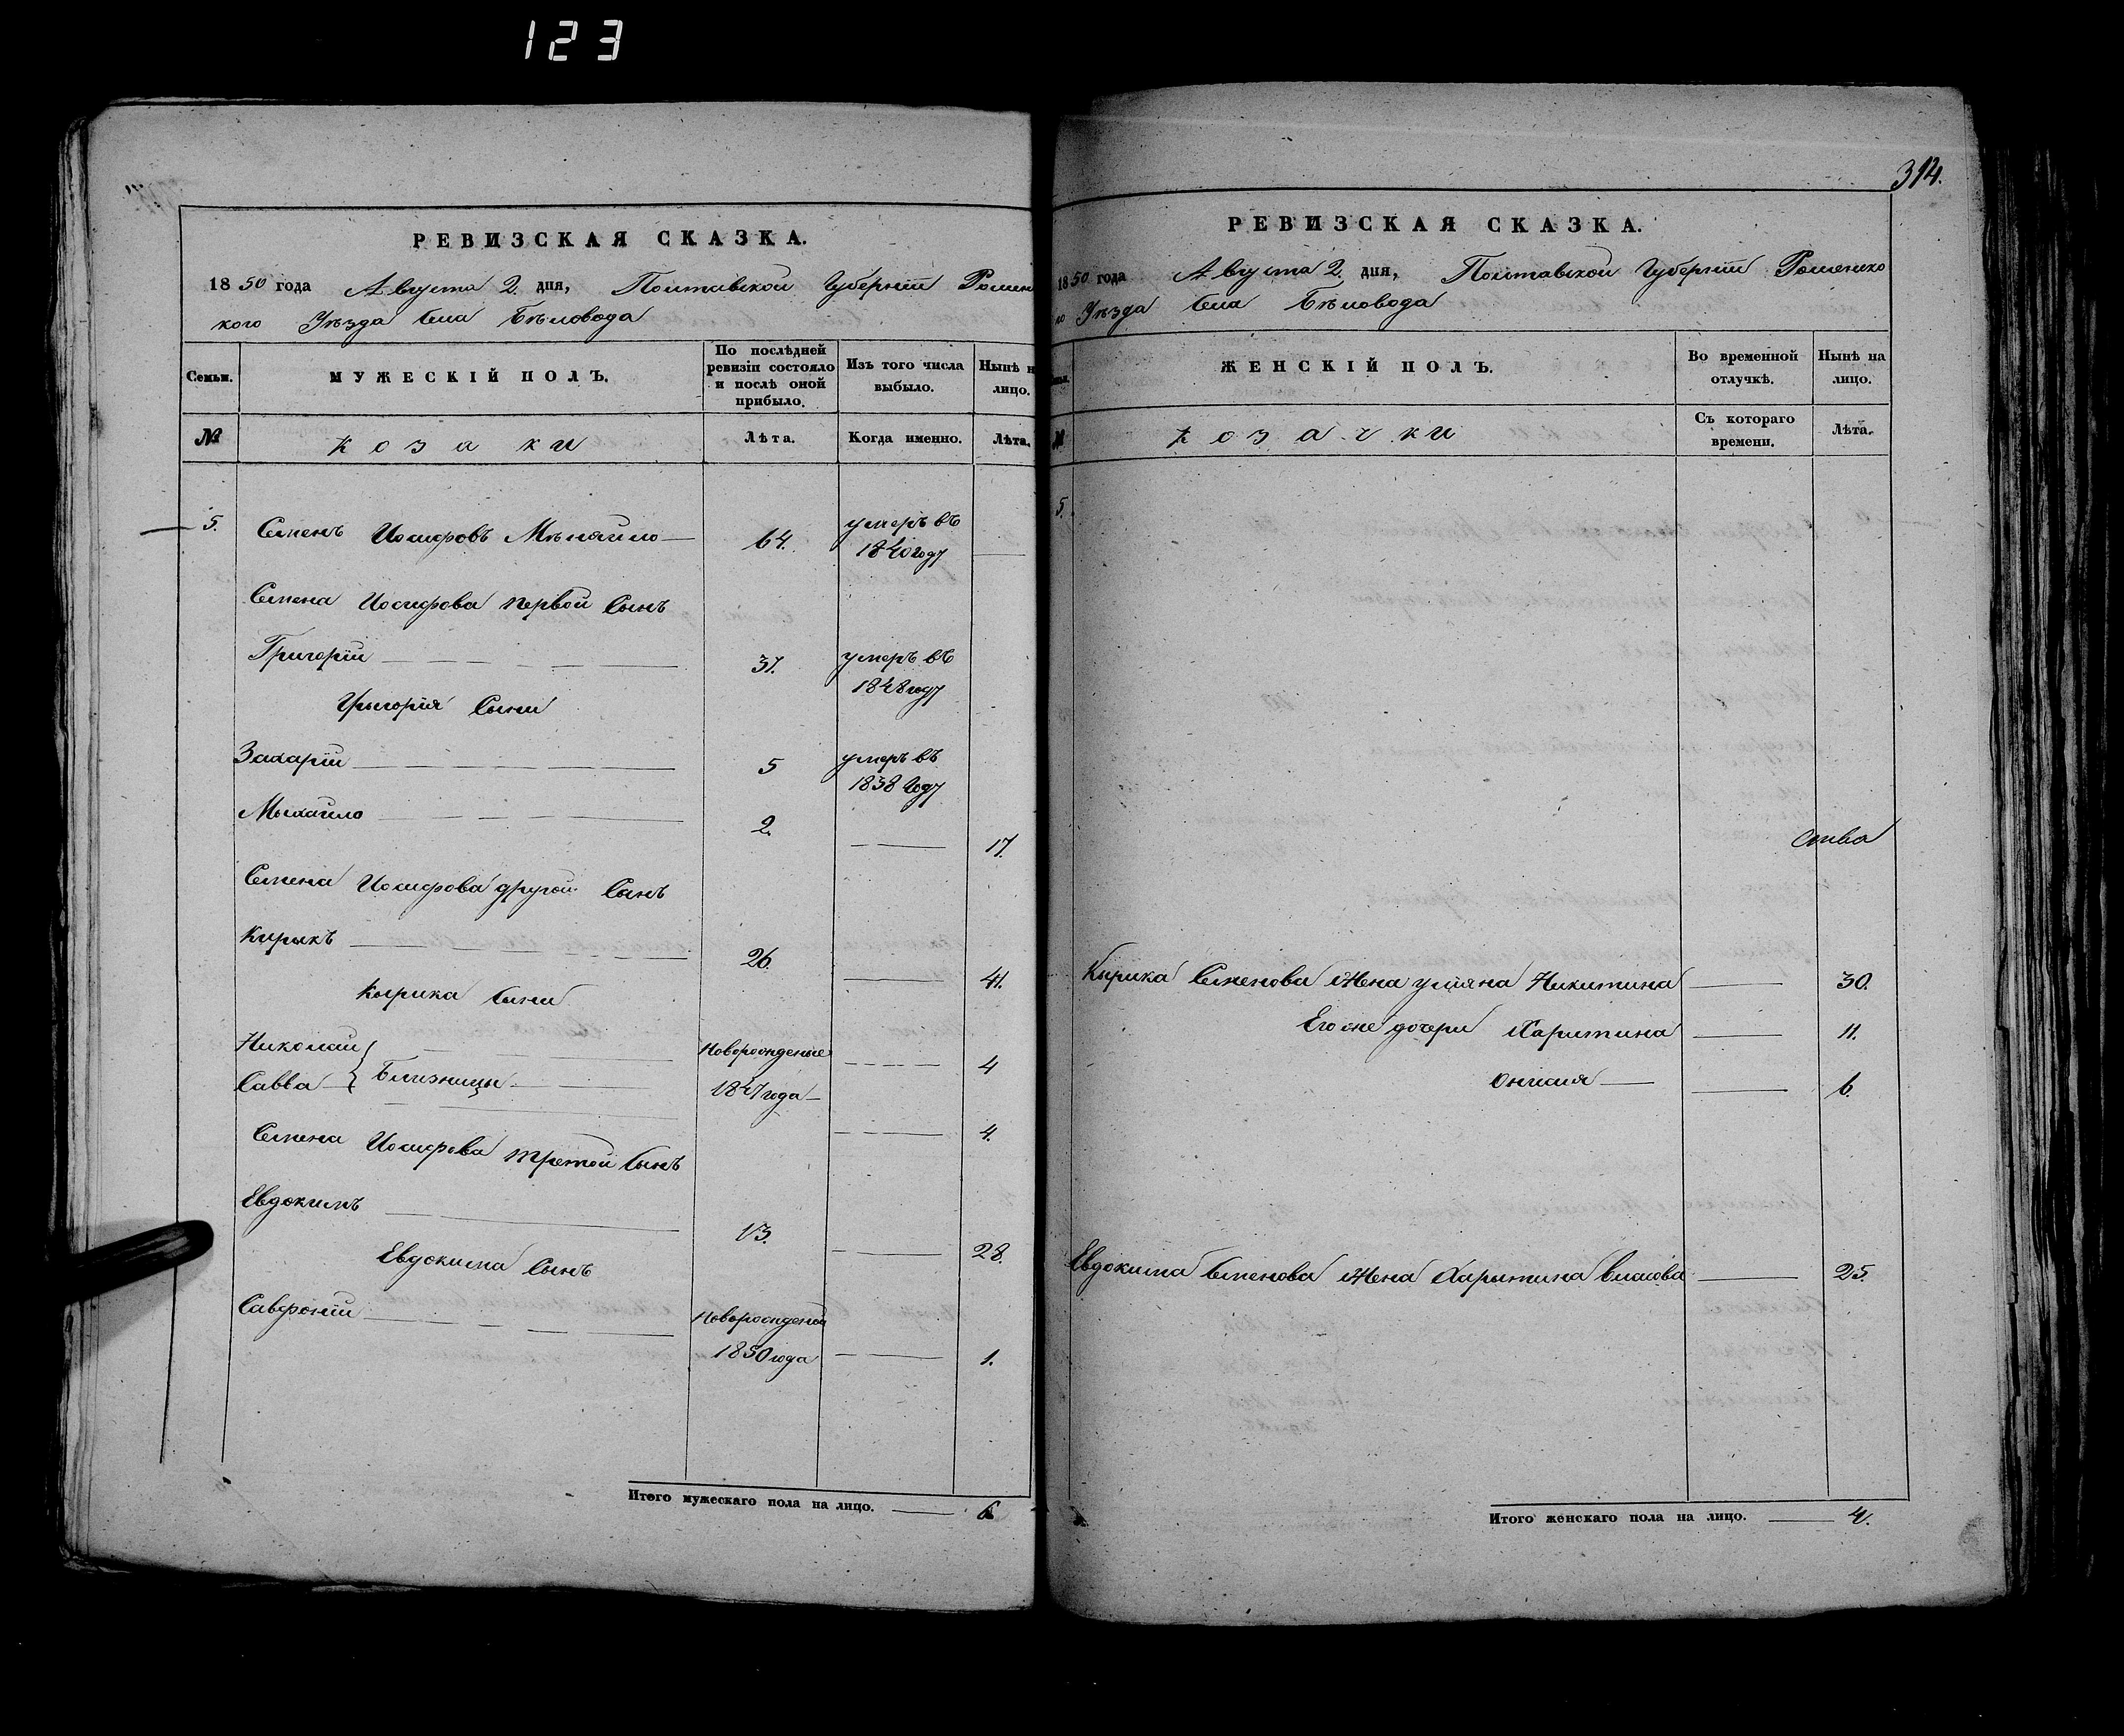 123
РЕВИЗСКАЯ СКАЗКА.
1850 года Августа 2 дня, Полтавской Губерніи Ромен
кого Уѣзда Села Бѣловода
Семьи.
МУЖЕСКІЙ ПОЛЪ.
По послѣдней
ревизіи состояло
и послѣ оной
прибыло.
Изъ того числа
выбыло.
Нынѣ н
лицо.
№
Козаки
Лѣта.
Когда именно.
Лѣта.
5. Семенъ Иосифовъ 64. умеръ въ
1840 году
Семена Иосифова первой Сынъ
Григорій 37. умеръ въ
1848 году
Григорія Сыни
Захарій 5 умеръ въ
1838 Году
Мыхайло 2. 17.
Семена Иосифова другой Сынъ
Кирыкъ 26. 41.
Кырика Сыни
Николай Новорожденые 4
Савва Близницы 1847 года 4.
Семена Иосифова третой Сынъ
Евдокимъ 13. 28.
Евдокима Сынъ
Савфоній Новорожденой
1850 года 1.
Итого мужескаго пола на лицо. 6
314.
РЕВИЗСКАЯ СКАЗКА.
1850 года Августа 2 дня, Полтавской Губерніи Роменско
го Уѣзда Села Бѣловода
ЖЕНСКІЙ ПОЛЪ.
Во временной
отлучкѣ.
Нынѣ на
лицо.
Козачки
Съ котораго
времени.
Лѣта.
5.
Кырика Семенова Жена Улияна Никитина 30.
Его же дочери Харитина 11.
6.
Евдокима Семенова Жена Харытина Власова 25.
Итого женскаго пола на лицо. 4.